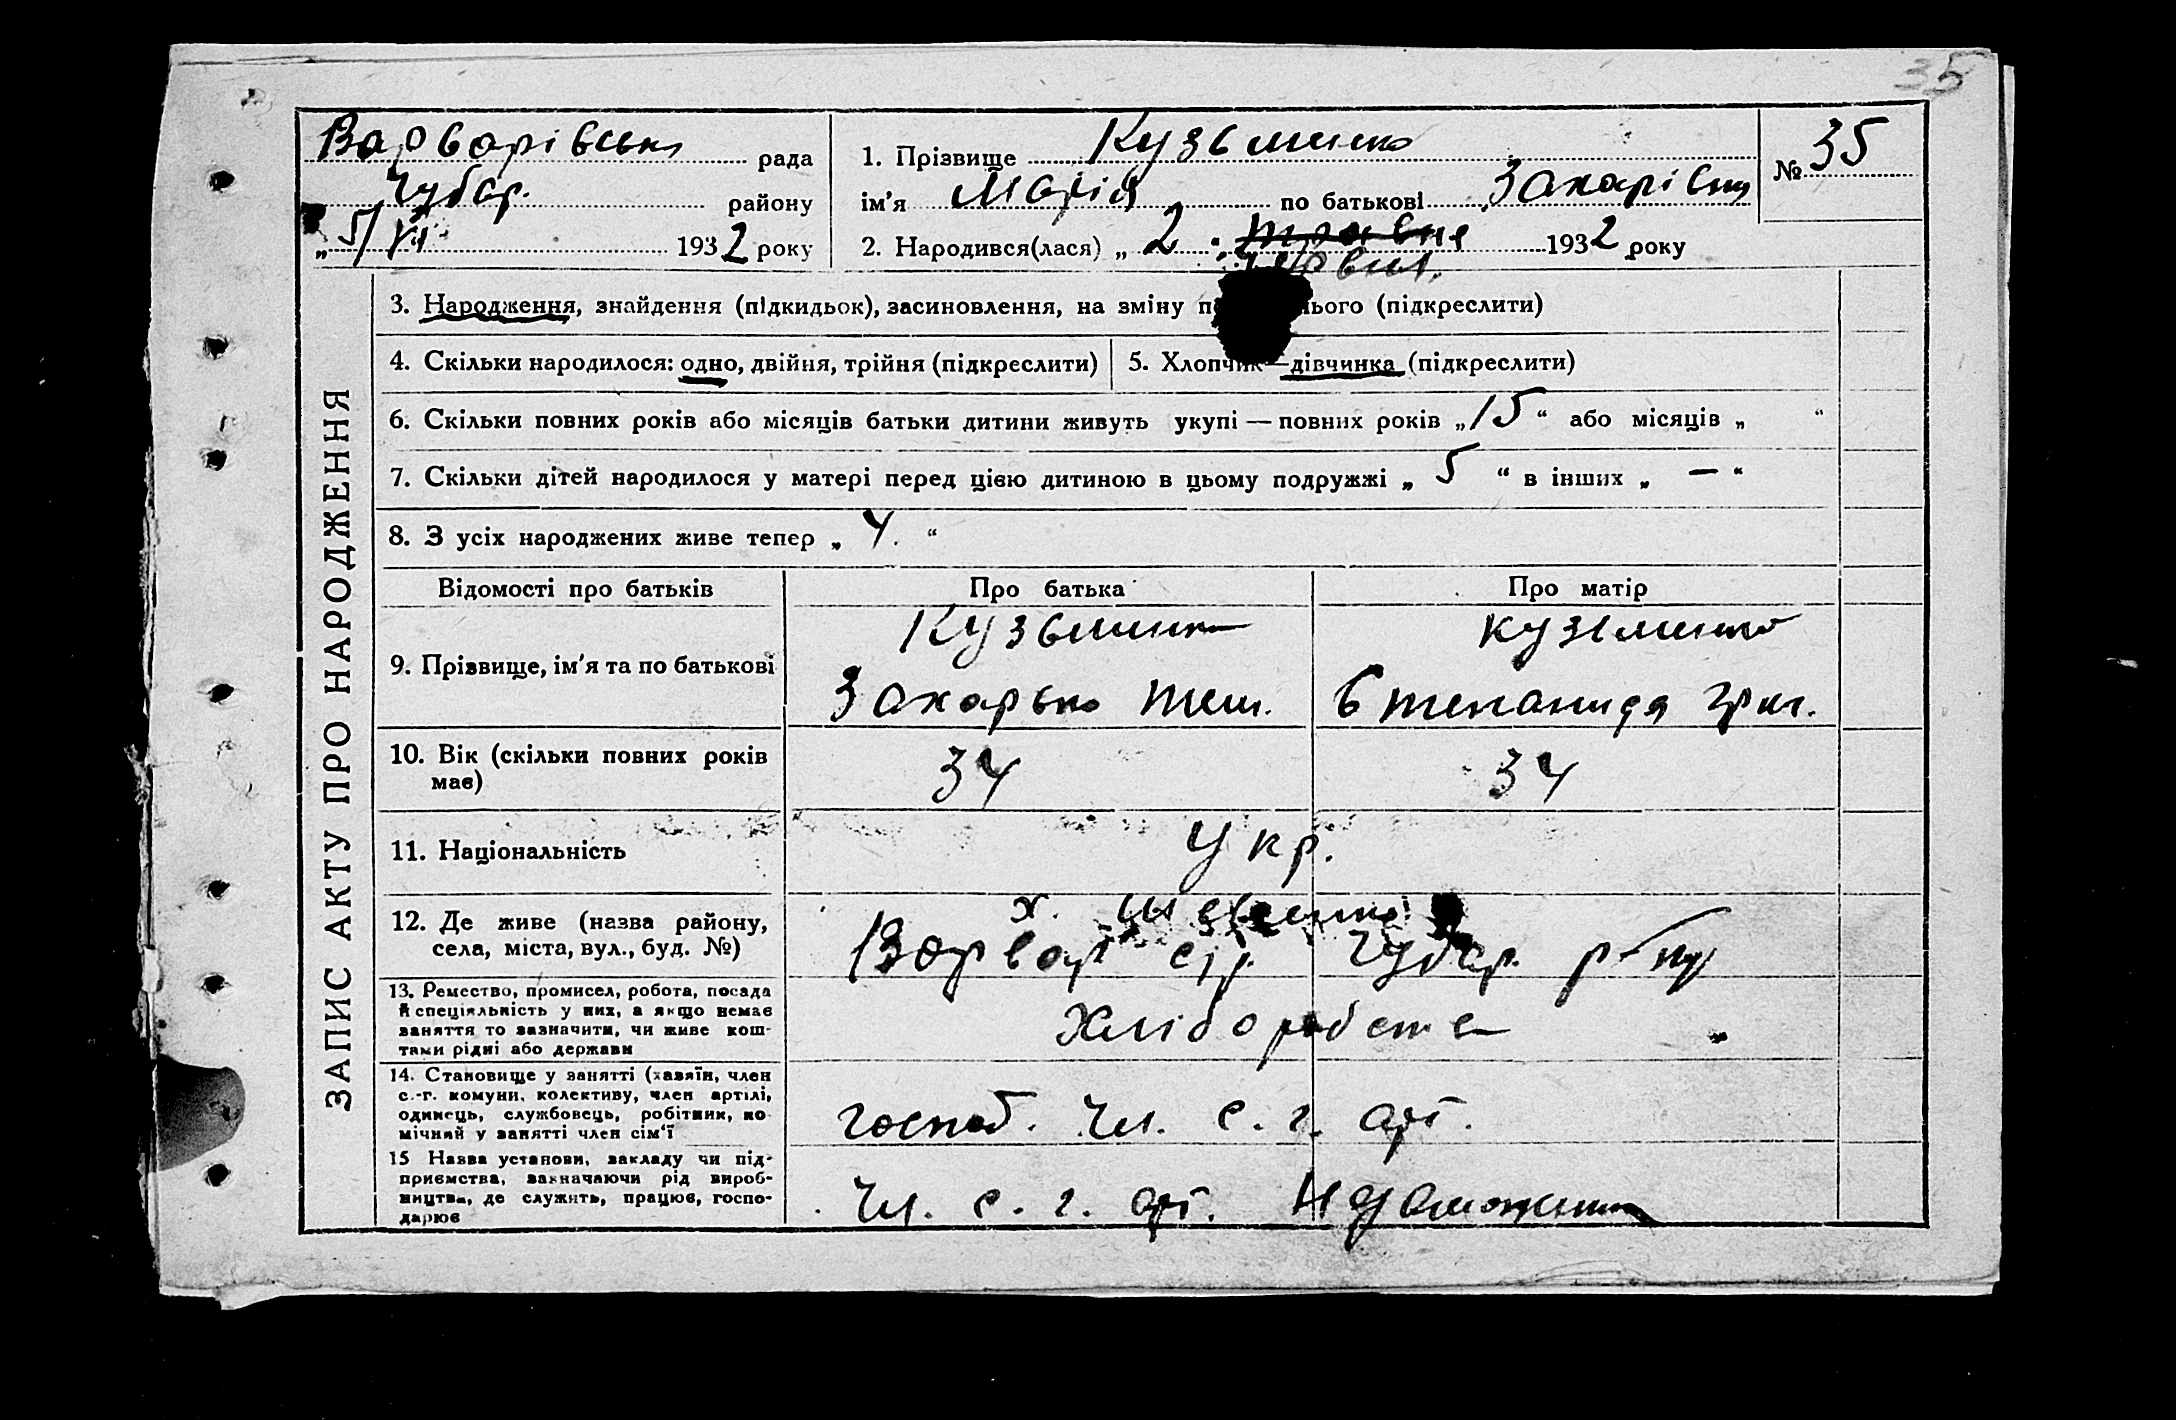 35
Варварівськ рада
Чубар. району
„ 5/VI 1932 року
1. Прізвище Кузьменко
ім'я Марія по батькові Захарівна
№ 35
2. Народився(лася) „ 2 . травня 1932 року
червня.
ЗАПИС АКТУ ПРО НАРОДЖЕННЯ
3. Народження, знайдення (підкидьок), засиновлення, на зміну п ього (підкреслити)
4. Скільки народилося: одно, двійня, трійня (підкреслити)
5. Хлопчик—дівчинка (підкреслити)
6. Скільки повних років або місяців батьки дитини живуть укупі — повних років „ 15 “ або місяців „ “
7. Скільки дітей народилося у матері перед цією дитиною в цьому подружжі „ 5 “ в інших „ — “
8. З усіх народжених живе тепер „ 4. “
Відомості про батьків
Про батька
Про матір
9. Прізвище, ім'я та по батькові
Кузьменко
Захарько
Кузьменко
Степанида Григ.
10. Вік (скільки повних років
має)
34
34
11. Національність
Укр.
12. Де живе (назва району,
села, міста, вул., буд. №)
х. Шевченко
Варвар с/р. Чубар. р-ну
13. Ремество, промисел, робота, посада
й спеціяльність у них, а якщо немає
заняття то зазначити, чи живе кош-
тами рідні або держави
Хлібороб
14. Становище у занятті (хазяїн, член
с.-г. комуни, колективу, член артілі,
одинець, службовець, робітник, по
мічний у занятті член сім'ї
господ. Чл. с. г. арт.
15 Назва установи, закладу чи під-
приємства, зазначаючи рід вироб-
ництва, де служить, працює, госпо-
дарює
Чл. с. г. арт. Незаможник